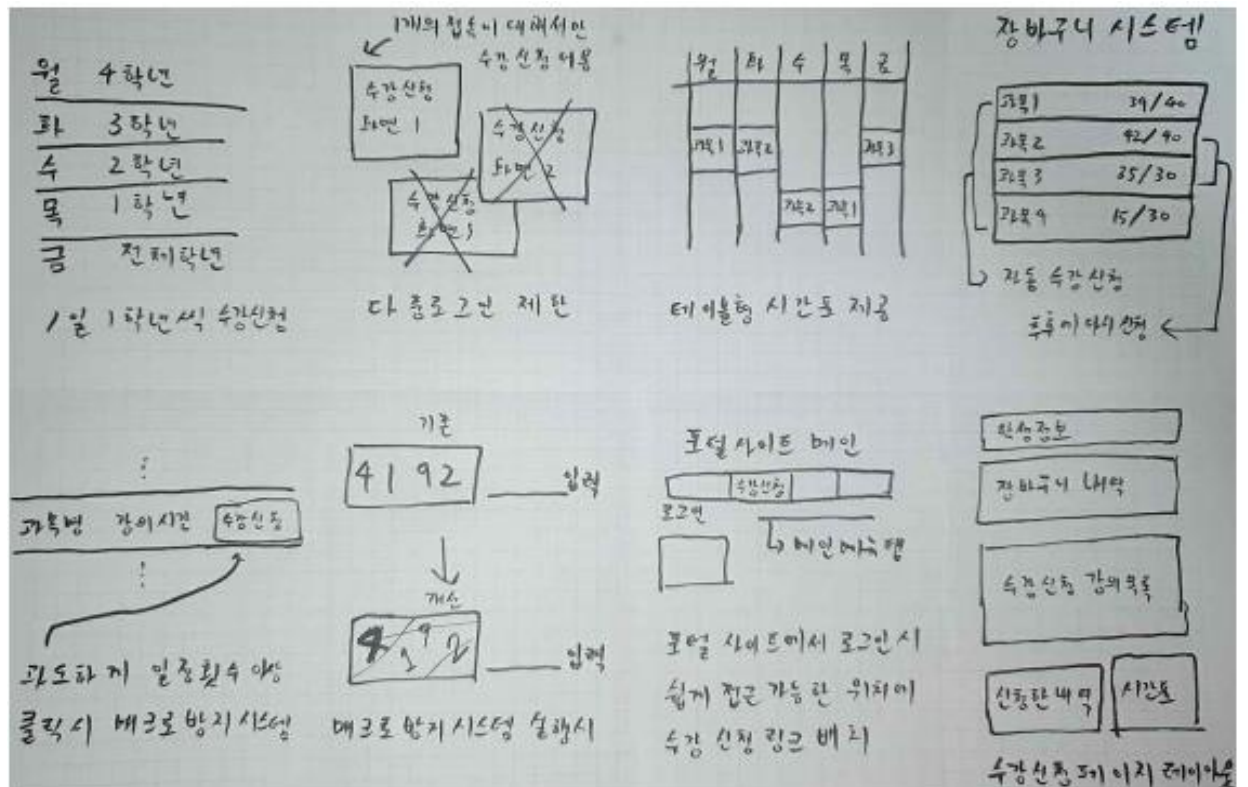 월 4학년
화 3학년
수 2학년
목 1학년
금 전체학년
1일 1학년씩 수강신청
1개의 접속에 대해서만
수강신청 허용
수강신청
화면 1
수강신청
화면 2
수강신청
화면 3
다중로그인 제한
월 화 수 목 금
과목1 과목2 과목3
과목2 과목1
테이블형 시간표 제공
장바구니 시스템
과목1 39/40
과목2 42/40
과목3 35/30
과목4 15/30
자동 수강신청
추후에 다시 신청
과목명 강의시간 수강신청
과도하게 일정횟수 이상
클릭시 매크로 방지 시스템
기존
4192 입력
개선
4 1 9 2 입력
매크로 방지 시스템 실행시
포털사이트 메인
수강신청
로그인
메인메뉴탭
포털 사이트에서 로그인시
쉽게 접근 가능한 위치에
수강 신청 링크 배치
학생정보
장바구니 내역
수강신청 강의목록
신청한 내역 시간표
수강신청 페이지 레이아웃